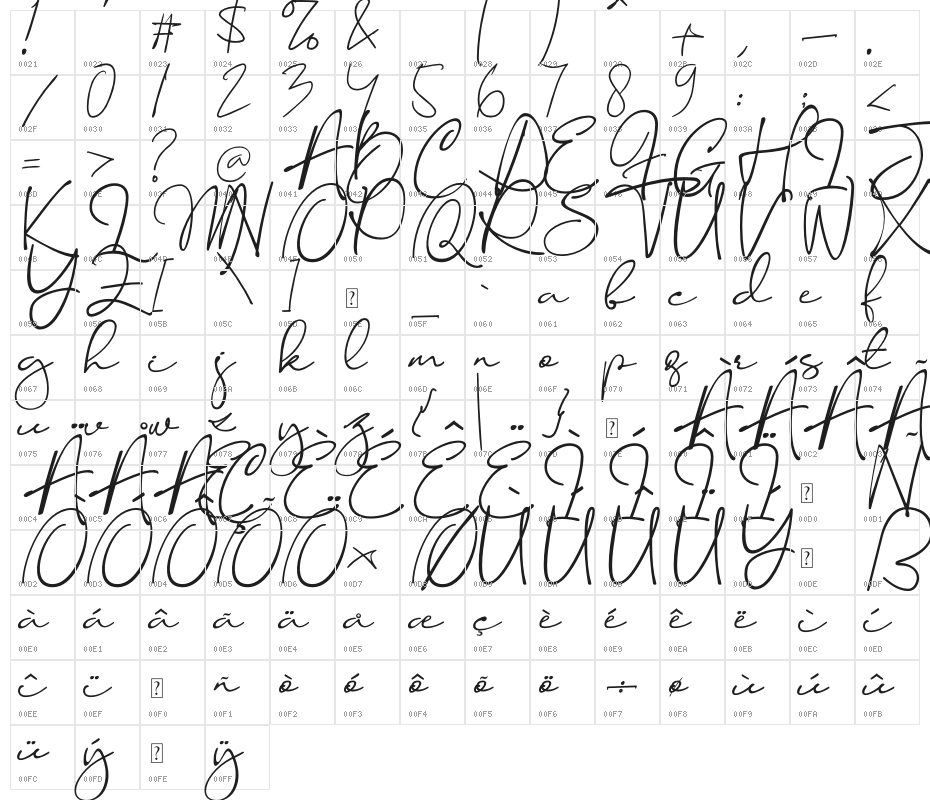 ! # $ % & ( ) + , - .
0021 0022 0023 0024 0025 0026 0027 0028 0029 002A 002B 002C 002D 002E
/ 0 1 2 3 4 5 6 7 8 9 : ; <
002F 0030 0031 0032 0033 0034 0035 0036 0037 0038 0039 003A 003B 003C
= > ? @ A B C D E F G H I J
003D 003E 003F 0040 0041 0042 0043 0044 0045 0046 0047 0048 0049 004A
K L M N O P Q R S T U V W X
004B 004C 004D 004E 004F 0050 0051 0052 0053 0054 0055 0056 0057 0058
Y Z [ \ ] ? _ ` a b c d e f
0059 005A 005B 005C 005D 005E 005F 0060 0061 0062 0063 0064 0065 0066
g h i j k l m n o p q r s t
0067 0068 0069 006A 006B 006C 006D 006E 006F 0070 0071 0072 0073 0074
u v w x y z { | } ? À Á Â Ã
0075 0076 0077 0078 0079 007A 007B 007C 007D 007E 00C0 00C1 00C2 00C3
Ä Å Æ Ç È É Ê Ë Ì Í Î Ï ? Ñ
00C4 00C5 00C6 00C7 00C8 00C9 00CA 00CB 00CC 00CD 00CE 00CF 00D0 00D1
Ò Ó Ô Õ Ö × Ø Ù Ú Û Ü Ý ? ß
00D2 00D3 00D4 00D5 00D6 00D7 00D8 00D9 00DA 00DB 00DC 00DD 00DE 00DF
à á â ã ä å æ ç è é ê ë ì í
00E0 00E1 00E2 00E3 00E4 00E5 00E6 00E7 00E8 00E9 00EA 00EB 00EC 00ED
î ï ? ñ ò ó ô õ ö ÷ ø ù ú û
00EE 00EF 00F0 00F1 00F2 00F3 00F4 00F5 00F6 00F7 00F8 00F9 00FA 00FB
ü ý ? ÿ
00FC 00FD 00FE 00FF